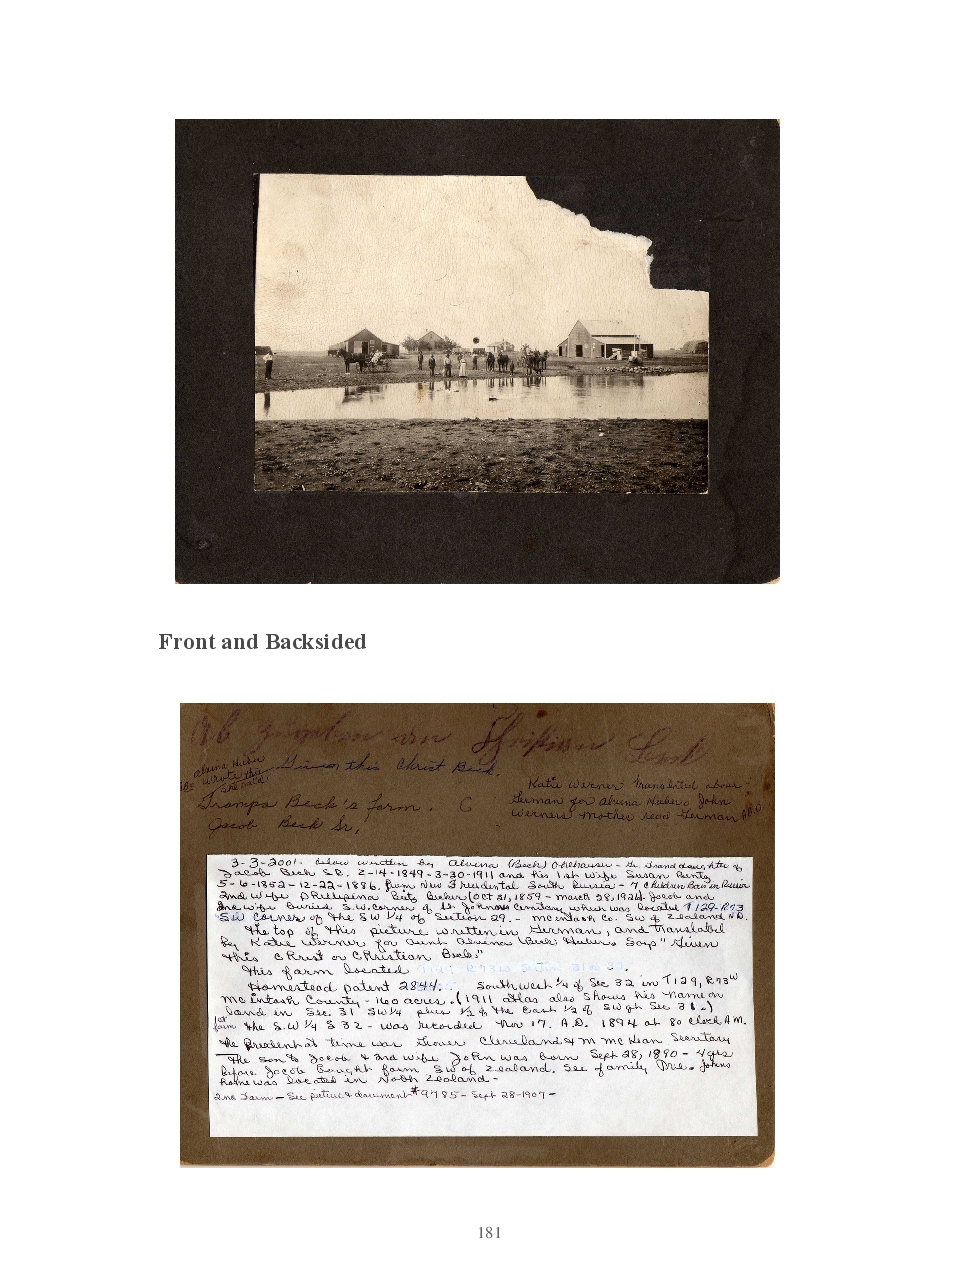 Front and Backsided
Given this Christ Beck.
Alvina Huber
wrote this
she said
Katie Werner Translated above
German for Alvina Huber. John
Werners Mother read German
Grampa Beck's farm. C
Jacob Beck Sr,
3-3-2001. below written by Alvena (Beck) - Gr. Granddaughter of
Jacob Beck SR. 2-14-1849-3-30-1911 and his 1st Wife Susan
5-6-1852-12-22-1886. from New Freudental South Russia - 7 children Born in Russia
2nd wife Philipina Beitz (Oct 31, 1859 - March 28, 1926). Jacob and
2nd wife Buried S.W. Corner of St. Johns Cemitary which was located T129-R73
SW Corner of the SW 1/4 of Section 29. - McIntosh Co. SW of Zealand ND.
The top of this picture written in German, and translated
by Katie Werner for Aunt Alvena (Beck) Huber. Says "Given
this Christ or Christian Beck,"
This farm located
Homestead patent 2844. Southwest 1/4 of Sec 32 in T129, R73W
McIntosh County - 160 acres. (1911 atlas also shows his name on
land in Sec. 31 SW1/4 plus 1/2 of the East 1/2 of SW of Sec 31.)
1st farm The S.W 1/4 S 32 - was recorded Nov 17. A.D. 1894 at 8 o clock A.M.
The President at time was Grover Cleveland & M McKean Secretary
The son to Jacob & 2nd wife John was born Sept 28, 1890 - 4yrs
before Jacob Bought farm SW of Zealand. See family Tree. Johns
home was located in North Zealand -
2nd Farm - See picture & document #9785 - Sept 28-1907 -
181